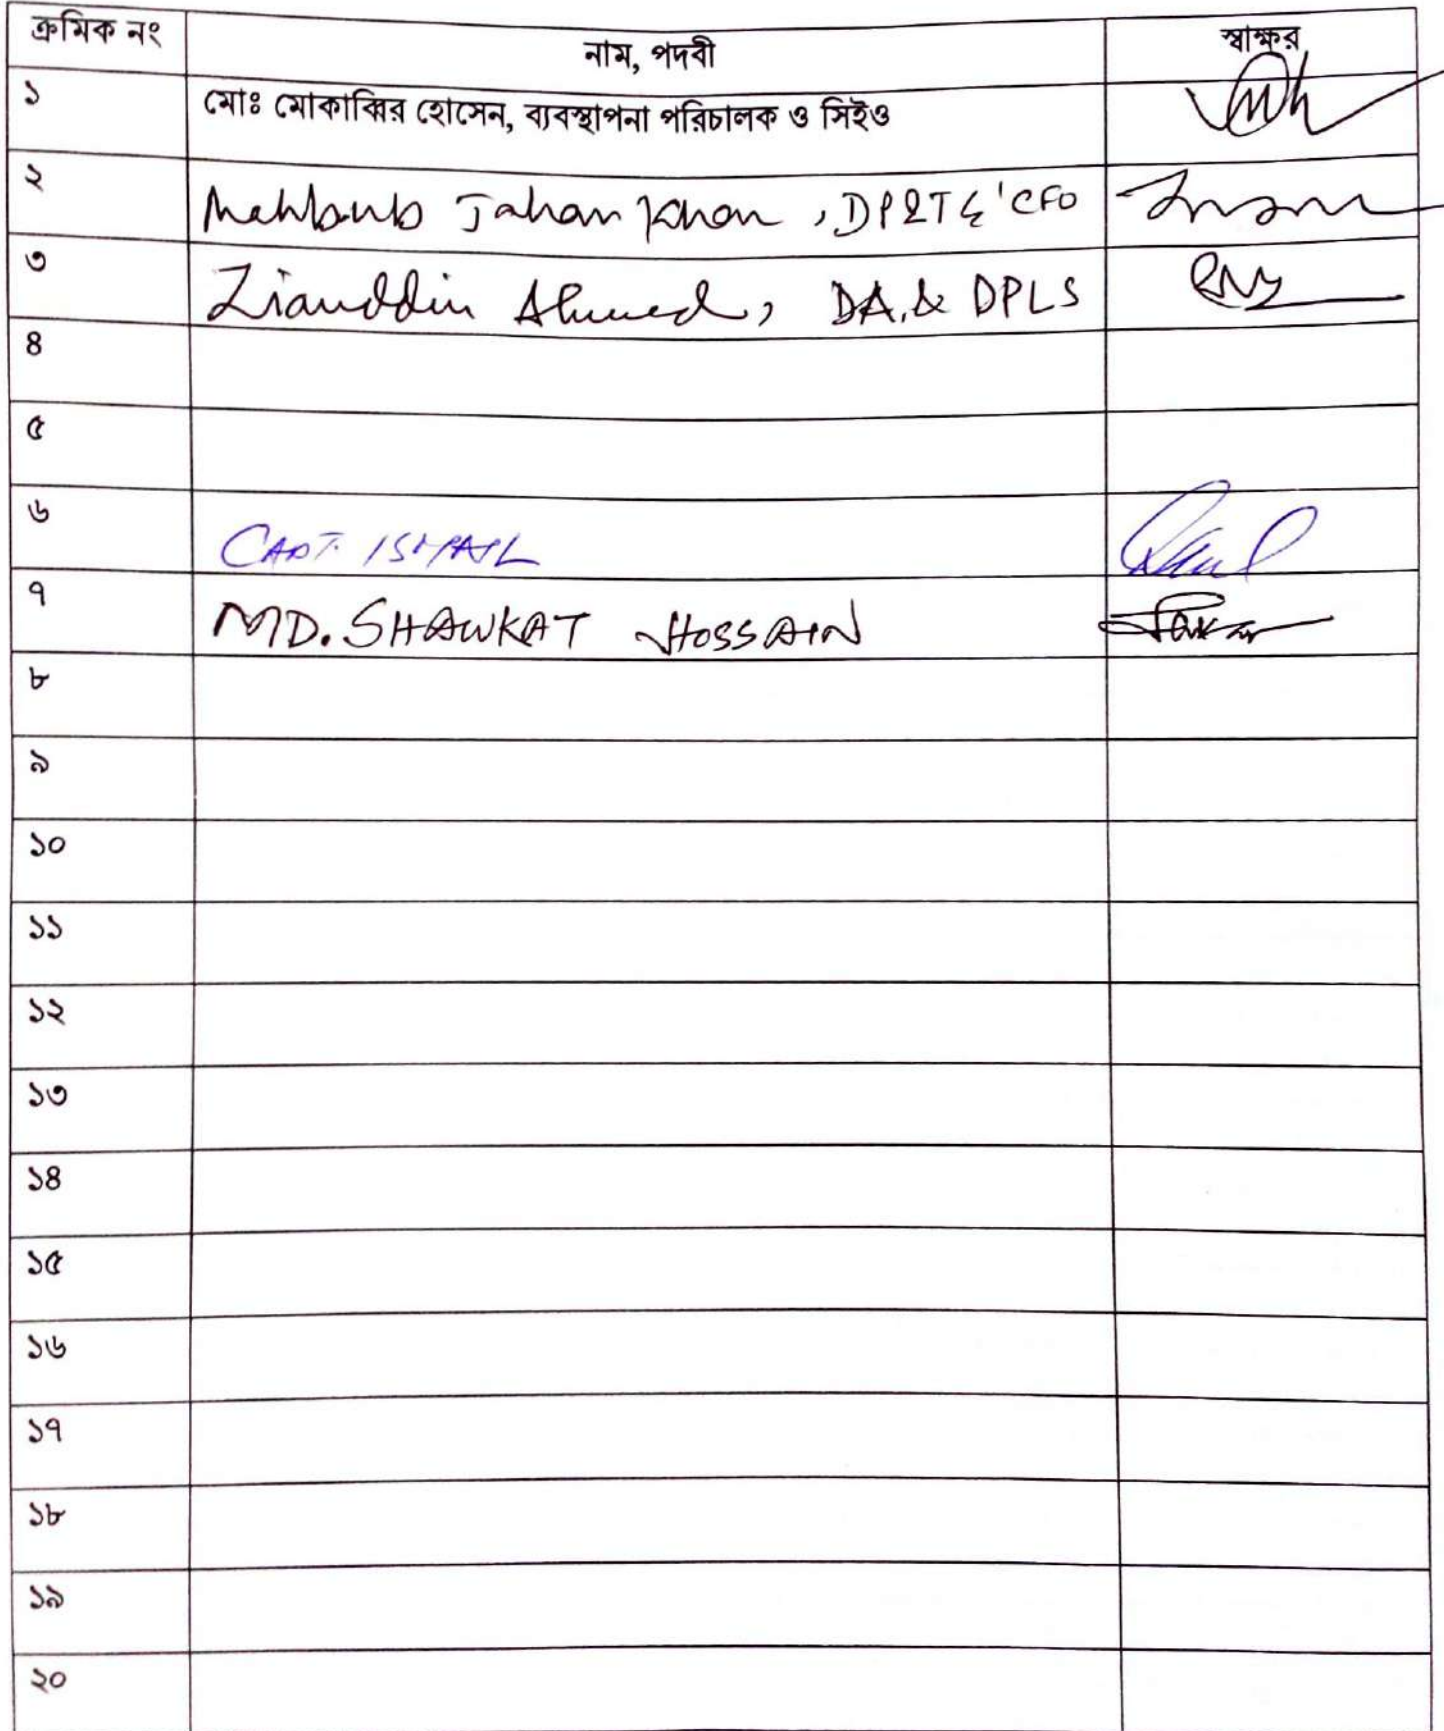 ক্রমিক নং নাম, পদবী স্বাক্ষর
১ মোঃ মোকাব্বির হোসেন, ব্যবস্থাপনা পরিচালক ও সিইও
২ Mahbub Jahan Khan , DP&T & CFO
৩ Ziauddin Ahmed, DA. & DPLS
৪
৫
৬ CAPT. ISMAIL
৭ MD. SHAWKAT HOSSAIN
৮
৯
১০
১১
১২
১৩
১৪
১৫
১৬
১৭
১৮
১৯
২০